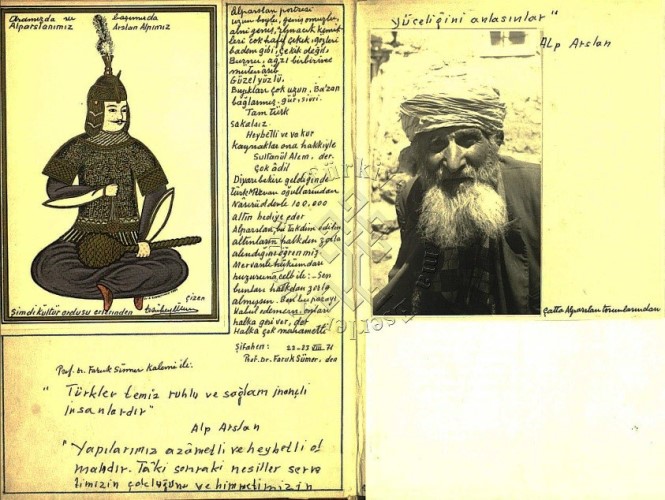 Aramızda ve başımızda
Alparslanımız Arslan Alpımız
Çizen
Şimdi kültür ordusu erlerinden
Alparslan portresi
uzun boylu, geniş omuzlu,
alnı geniş, elmacık kemik-
leri çok hafif çıkık, gözleri
badem gibi, çekik değil,
Burnu, ağzı birbirine
mütenasip
Güzel yüzlü,
Bıyıkları çok uzun, Bazan
bağlarmış. gür, sivri.
Tam türk
sakalsız.
Heybetli ve vakur
kaynaklar ona hakkiyle
Sultanül Alem, der.
Çok âdil
Diyarıbekire geldiğinde
türk Mervan oğullarından
Nasırüddevle 100,000
altın hediye eder
Alparslan, bu takdim edilen
altınların halkdan zorla
alındığını öğrenmiş
Mervanlı hükümdarı
huzuruna celb ile: -Sen
bunları halkdan zorla
almışsın. Ben bu parayı
Kabul edemem, onları
halka geri ver, der
Halka çok
Şifahen: 22-23 VIII 71
Prof. Dr. Faruk Sümer, den
Prof. Dr. Faruk Sümer Kalemi ile:
" Türkler temiz ruhlu ve sağlam inançlı
insanlardır"
Alp Arslan
"Yapılarımız azâmetli ve heybetli ol
malıdır. Tâki sonraki nesiller serve
timizin çokluğunu ve himmetimizin
yüceliğini anlasınlar"
Alp Arslan
Çatta Alparslan torunlarından